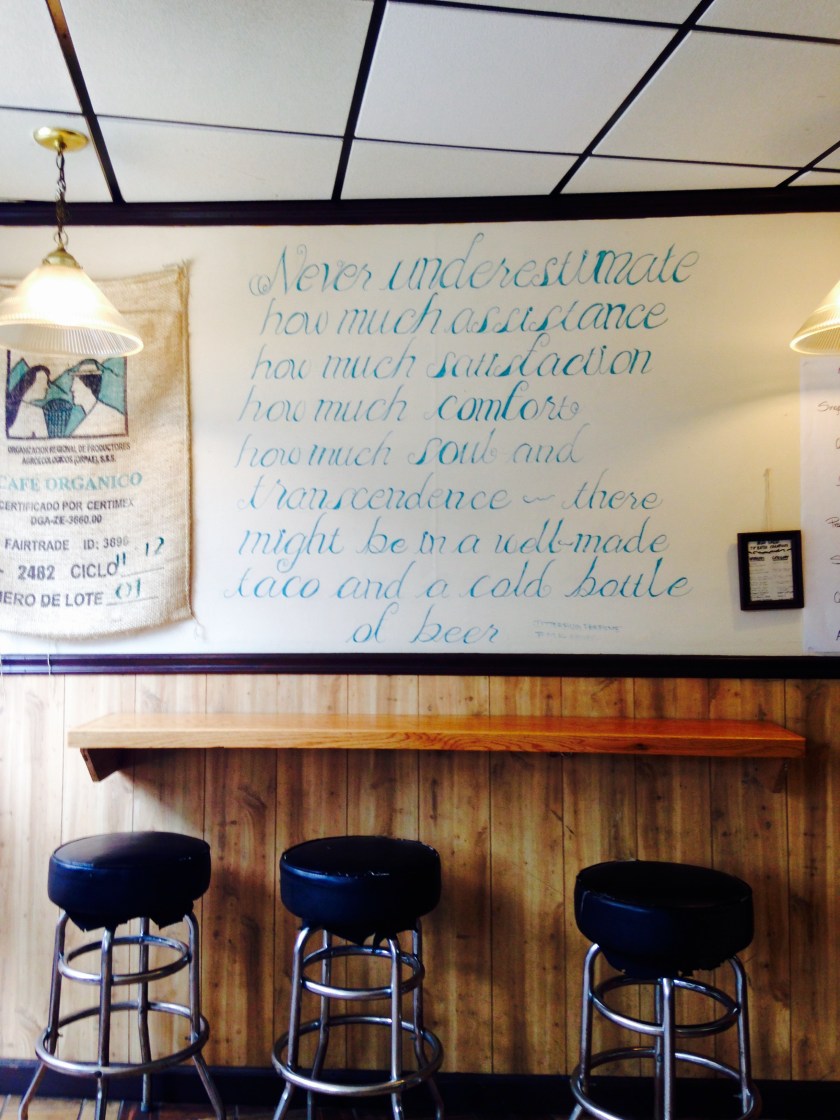 Never underestimate
how much assistance
how much satisfaction
how much comfort
how much soul and
transcendence ~ there
might be in a well-made
taco and a cold bottle
of beer
ORGANIZACION REGIONAL DE PRODUCTORES
AGROECOLOGICOS (ORPAE), S.S.S.
CAFE ORGANICO
CERTIFICADO POR CERTIMEX
DGA-ZE-3660.00
FAIRTRADE ID: 3696
2482 CICLO 11 12
MERO DE LOTE 01